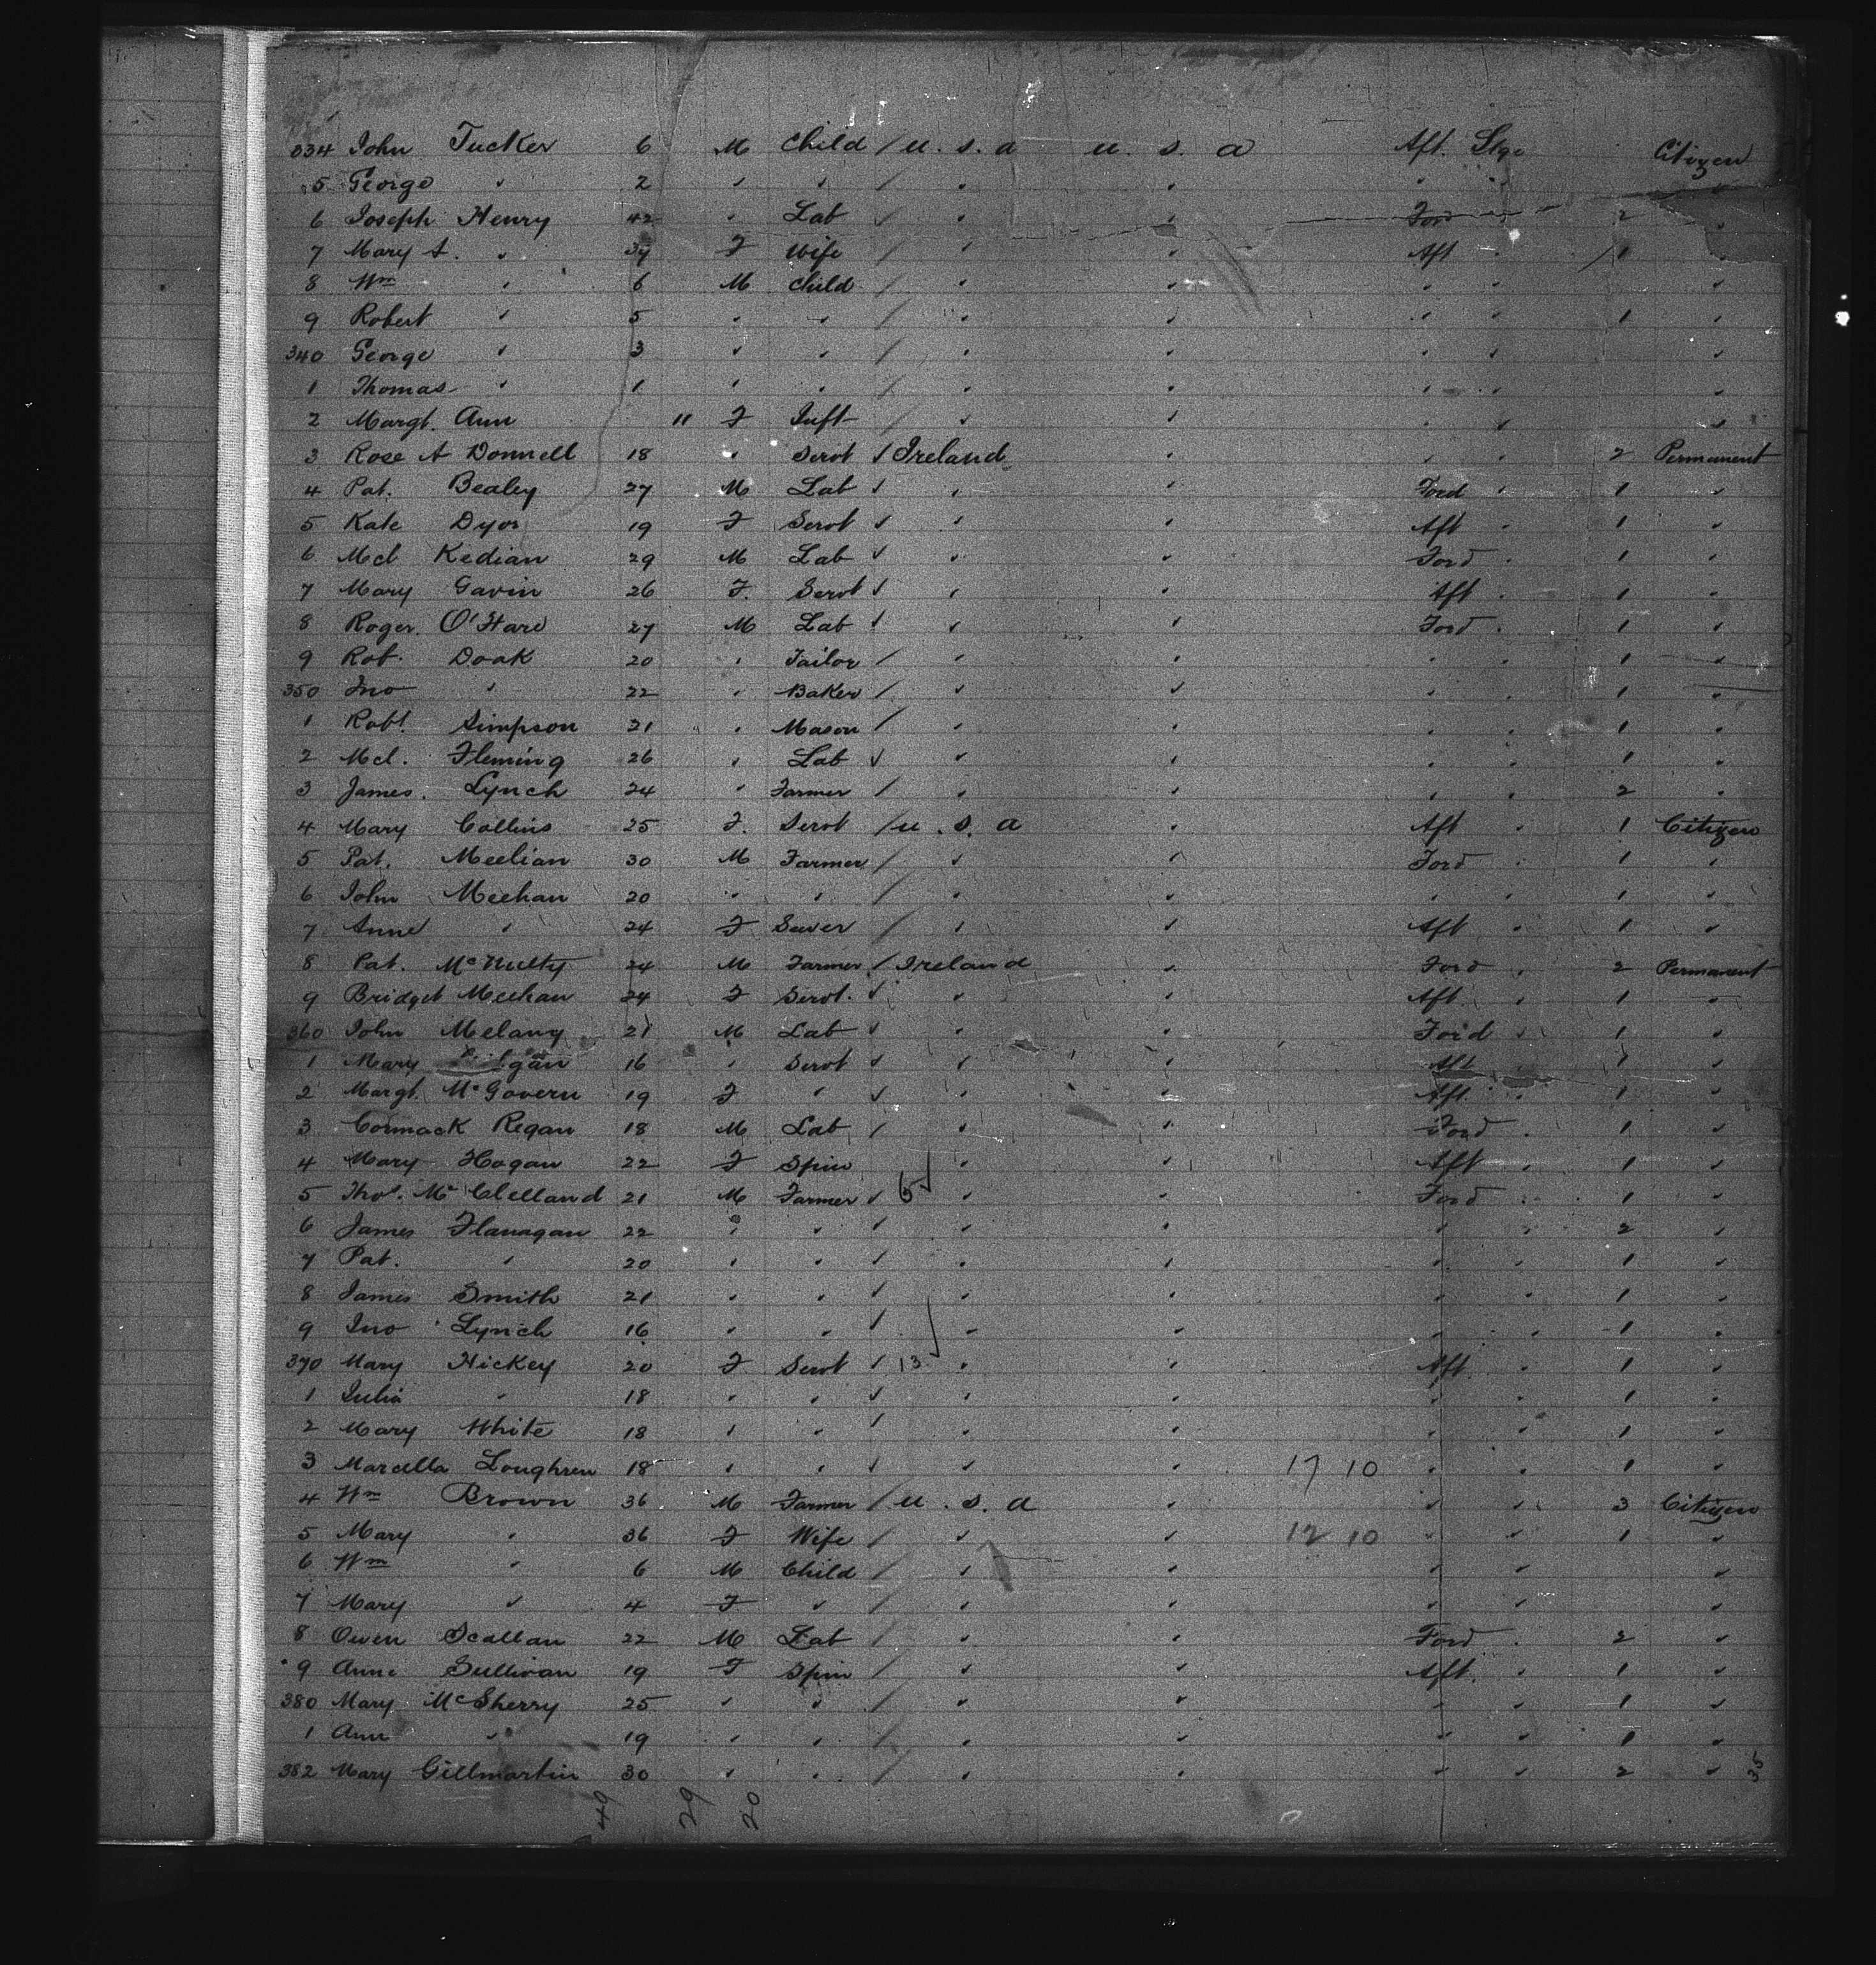 334 John Tucker 6 M Child / U.S.A U.S.A Aft. Stge Citizen
5 George " 2 " " / " " " " "
6 Joseph Henry 42 " Lab / " " Ford " 2 "
7 Mary A. " 34 F Wife / " " Aft " 1 "
8 Wm " 6 M Child / " " " " "
9 Robert " 5 " " / " " " " 1 "
340 George " 3 " " / " " " " "
1 Thomas " 1 " " / " " " " "
2 Margt. Ann 11 F Inft / " " " " "
3 Rose A Donnell 18 " Servt √ Ireland " " " 2 Permanent
4 Pat. Bealey 27 M Lab √ " " Ford " 1 "
5 Kate Dyer 19 F Servt √ " " Aft " 1 "
6 Mcl Kedian 29 M Lab √ " " Ford " 1 "
7 Mary Gavin 26 F. Servt √ " " Aft " 1 "
8 Roger O'Hare 27 M Lab √ " " Ford " 1 "
9 Rob. Doak 20 " Tailor / " " " " 1 "
350 Jno " 22 " Baker / " " " " 1 "
1 Robt. Simpson 21 " Mason / " " " " 1 "
2 Mcl. Fleming 26 " Lab √ " " " " 1 "
3 James Lynch 24 " Farmer / " " " " 2 "
4 Mary Collins 25 F. Servt / U.S.A " Aft " 1 Citizen
5 Pat. Meelian 30 M Farmer / " " Ford " 1 "
6 John Meehan 20 " " / " " " " 1 "
7 Anne " 24 F Sewer / " " Aft " 1 "
8 Pat. McNulty 24 M Farmer / Ireland " Ford " 2 Permanent
9 Bridget Meehan 24 F Servt. √ " " Aft " 1 "
360 John Melany 21 M Lab √ " " Ford " 1 "
1 Mary 16 " Servt √ " " Aft " 1 "
2 Margt. McGovern 19 F " √ " " Aft " 1 "
3 Cormack Regan 18 M Lab / " " Ford " 1 "
4 Mary Hogan 22 F Spin " " Aft " 1 "
5 Thos. McClelland 21 M Farmer √ 6 " " Ford " 1 "
6 James Flanagan 22 " " / " " " 2 "
7 Pat. " 20 " " / " " " " 1 "
8 James Smith 21 " " / " " " " 1 "
9 Jno Lynch 16 " " / " " " " 1 "
370 Mary Hickey 20 F Servt / 13 " " Aft " 1 "
1 Julia " 18 " " √ " " " " 1 "
2 Mary White 18 " " / " " " " 1 "
3 Marcella Loughren 18 " " √ " " 17 10 " " 1 "
4 Wm Brown 36 M Farmer / U.S.A " " " 3 Citizen
5 Mary " 36 F Wife / " " 12 10 " " 1 "
6 Wm " 6 M Child / " " " " "
7 Mary " 4 F " / " " " " "
8 Owen Scallan 22 M Lab / " " Ford " 2 "
9 Anne Sullivan 19 F Spin / " " Aft. " 1 "
380 Mary McSherry 25 " " / " " " " 1 "
1 Ann " 19 " " / " " " " 1 "
382 Mary Gillmartin 30 " " / " " " " 2 "
35
49 29 20